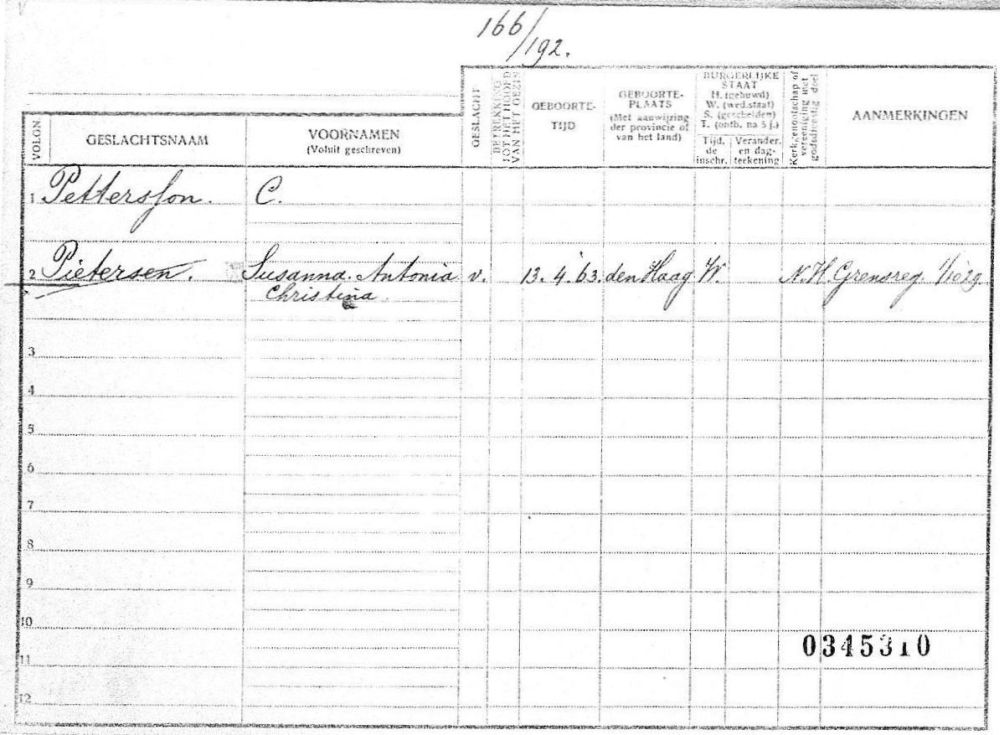 166/192.
VOLGN.
GESLACHTSNAAM
VOORNAMEN
(Voluit geschreven)
GESLACHT
BETREKKING
TOT HET HOOFD
VAN HET GEZIN
GEBOORTE-
TIJD
GEBOORTE-
PLAATS
(Met aanwijzing
der provincie of
van het land)
BURGERLIJKE
STAAT
H. (gehuwd)
W. (wed.staat)
S. (gescheiden)
T. (ontb. na 5 j.)
Tijd.
de
inschr.
Verander.
en dag-
teekening
Kerkgenootschap of
vereeniging met
godsdienstig doel
AANMERKINGEN
1 Pettersson. C.
2 Pietersen. Susanna Antonia v. 13.4.'63. den Haag W. N.H. Grensreg. 1/10'29.
Christina
3
4
5
6
7
8
9
10
11
12
0345310